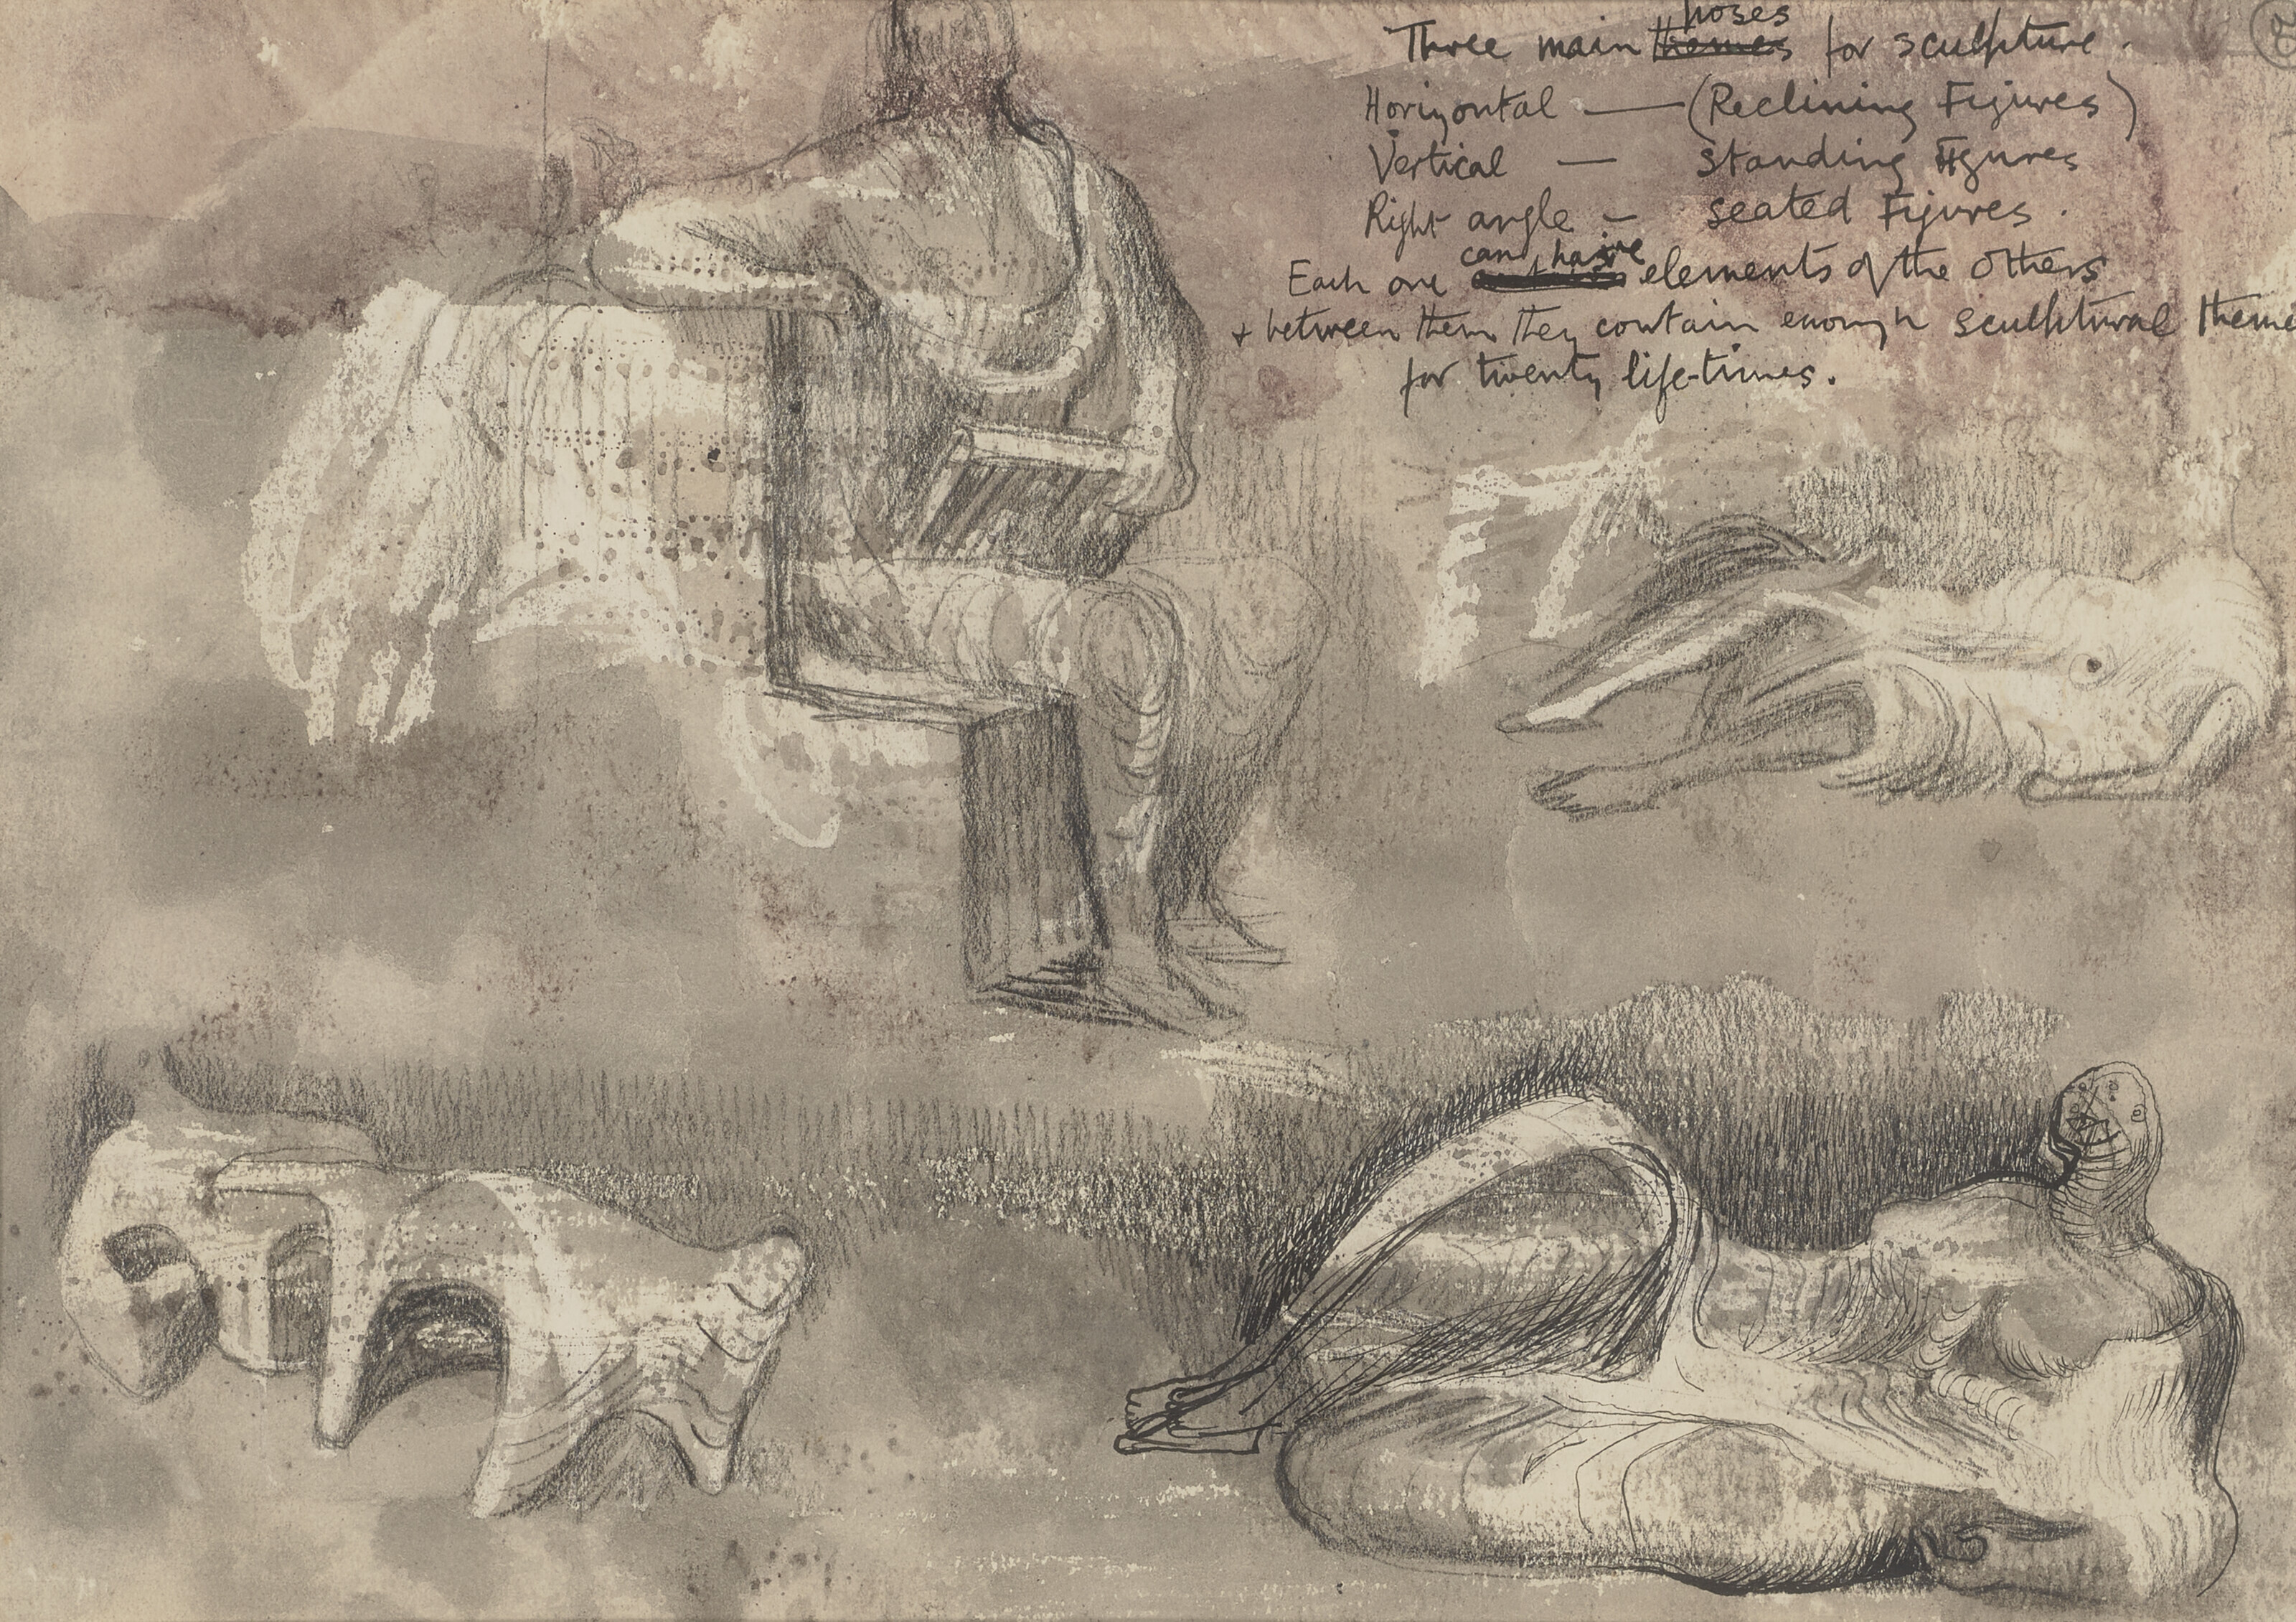 Three main poses for sculpture.
Horizontal — (Reclining Figures)
Vertical — Standing Figures
Right angle — seated Figures.
Each one can have elements of the others
+ between them they contain enough sculptural theme
for twenty life-times.